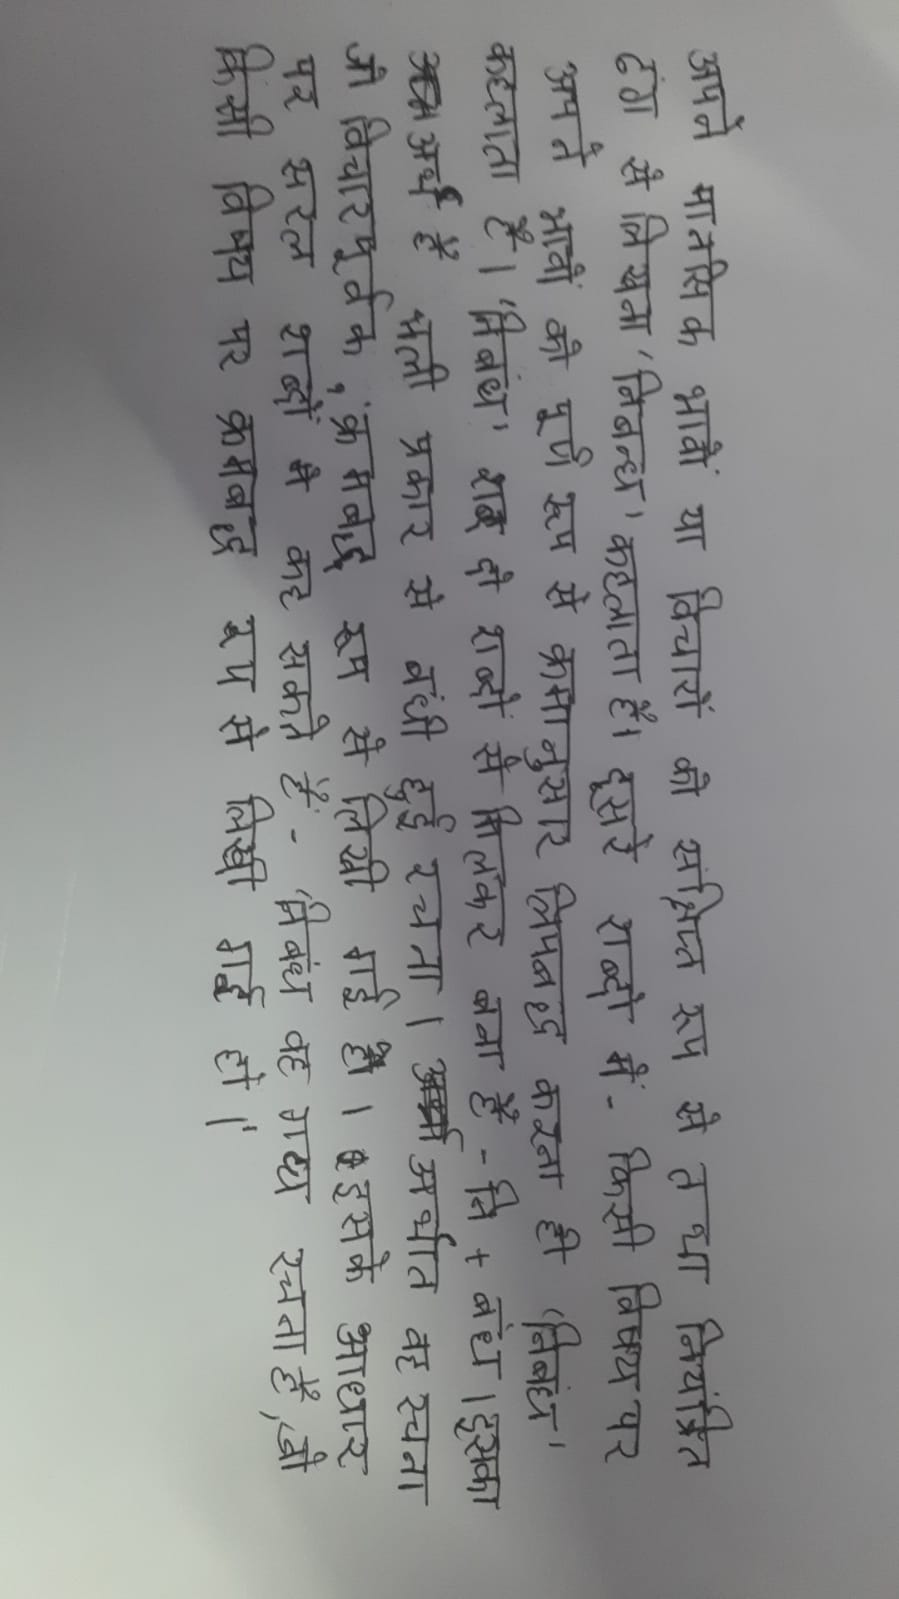 अपने मानसिक भावों या विचारों को संक्षिप्त रूप से तथा नियंत्रित
ढंग से लिखना 'निबन्ध' कहलाता है। दूसरे शब्दो में - किसी विषय पर
अपने भावों को पूर्ण रूप से क्रमानुसार लिपबद्ध करना ही 'निबंध'
कहलाता है। 'निबंध' शब्द दो शब्दों से मिलकर बना है - नि + बंध। इसका
अर्थ है भली प्रकार से बंधी हुई रचना। अर्थात वह रचना
जो विचारपूर्वक, क्रमबद्ध रूप से लिखी गई हो। इसके आधार
पर सरल शब्दों मे कह सकते हैं - 'निबंध वह गद्य रचना है, जो
किसी विषय पर क्रमबद्ध रूप से लिखी गई हो।'